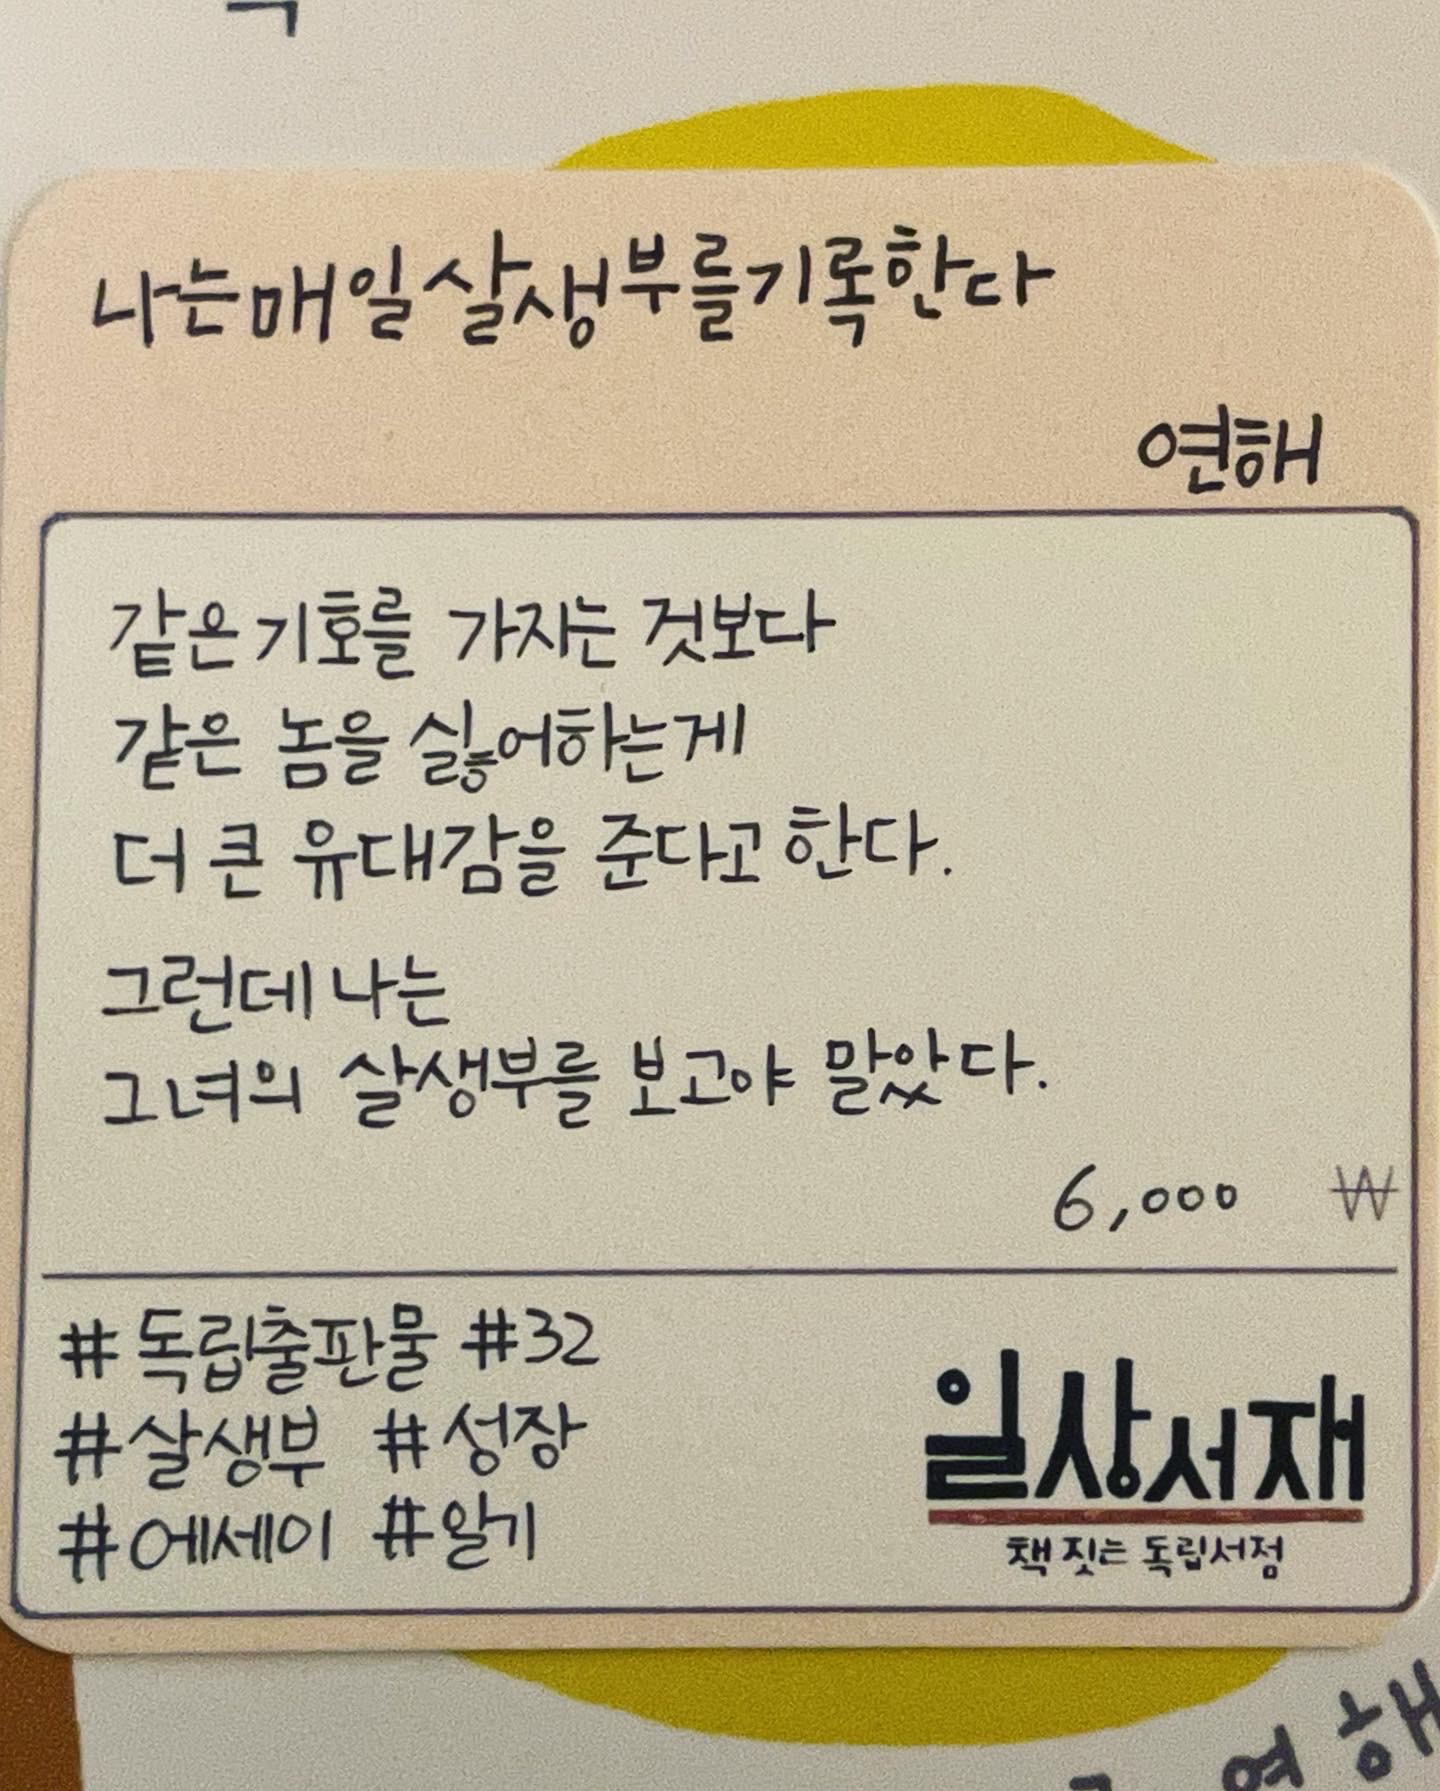 나는매일살생부를기록한다
연해
같은기호를 가지는 것보다
같은 놈을 싫어하는게
더 큰 유대감을 준다고 한다.
그런데 나는
그녀의 살생부를 보고야 말았다.
6,000 ₩
#독립출판물 #32
#살생부 #성장
#에세이 #일기
일상서재
책 짓는 독립서점
연해